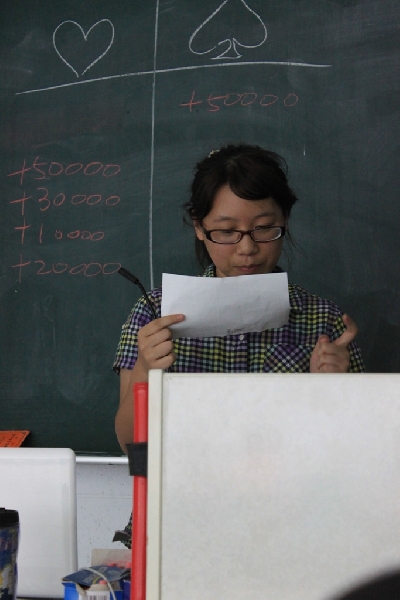 +50000
+50000
+30000
+10000
+20000